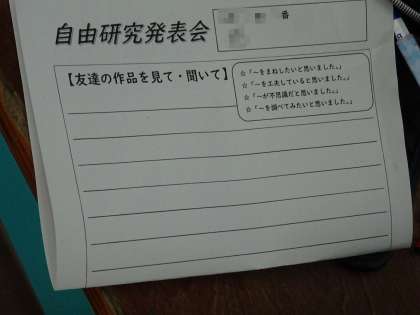 自由研究発表会
番
【友達の作品を見て・聞いて】
☆「〜をまねしたいと思いました。」
☆「〜を工夫していると思いました。」
☆「〜が不思議だと思いました。」
☆「〜を調べてみたいと思いました。」